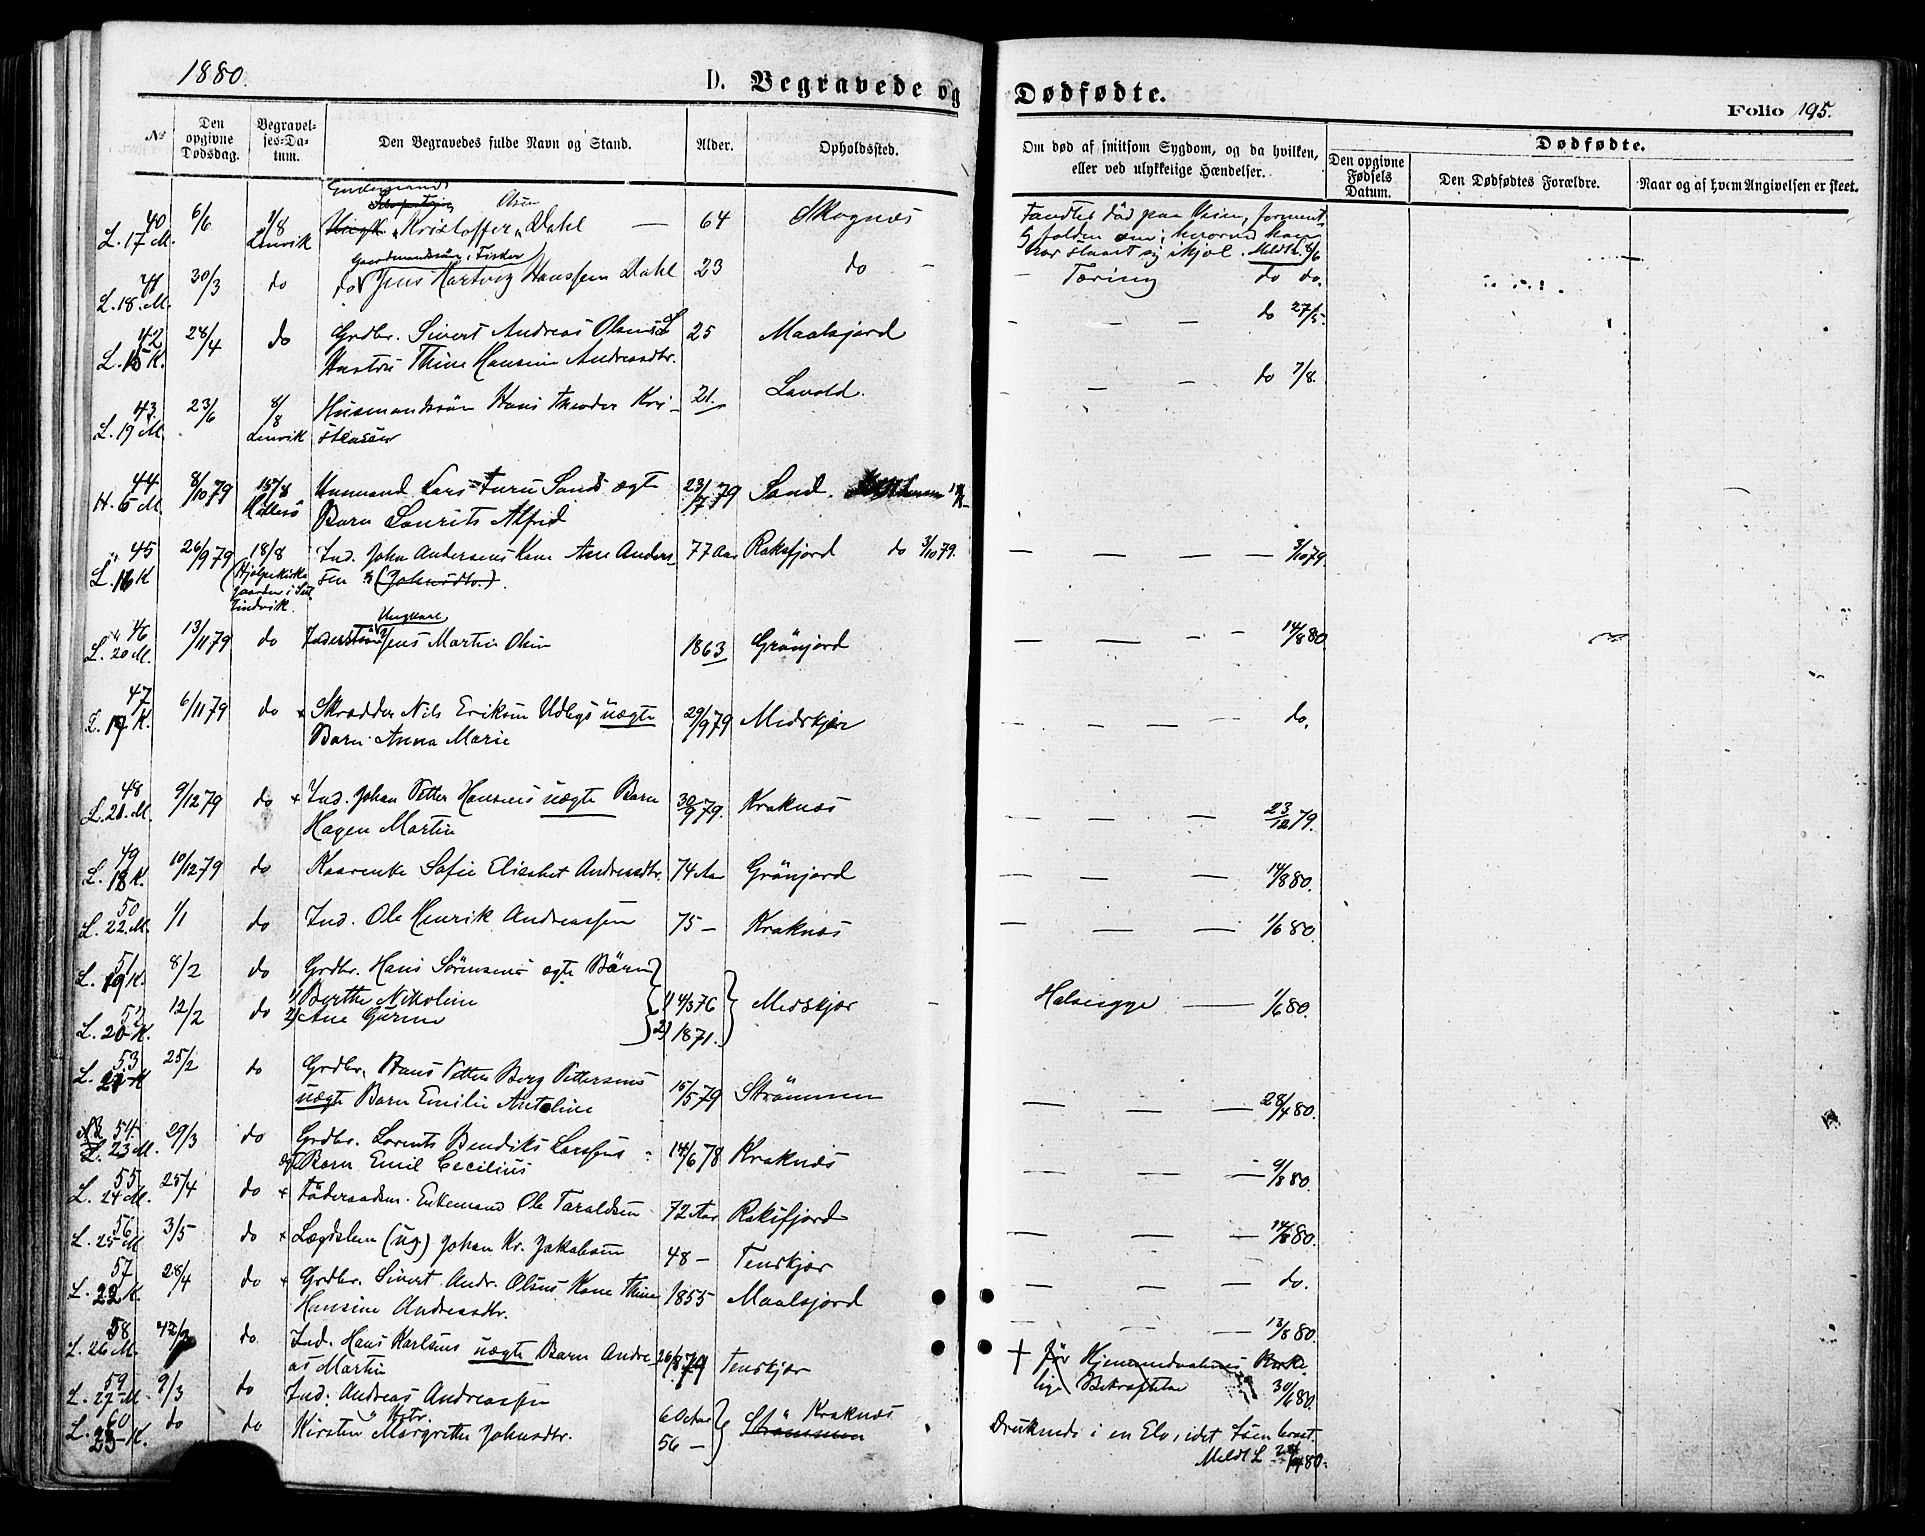 1880.
D. Begravede og Dødfødte.
Folio 195.
No
Den opgivne Dødsdag.
Begravel-ses-Da-tum.
Den Begravedes fulde Navn og Stand.
Alder.
Opholdssted.
Om død af smitsom Sygdom, og da hvilken,
eller ved ulykkelige Hændelser.
Dødfødte.
Den opgivne Fødsels Datum.
Den Dødfødtes Forældre.
Naar og af hvem Angivelsen er skeet.
Olsen
40 6/6 7/8 Kristoffer Dahl — 64 Skognæs
L. 17 M. Lenvik
Meldt L. 8/6
Gaardmandssøn, Fisker
41 30/3 do do Jens Hartvig Hanssen Dahl 23 do — Tæring do do.
L. 18. M.
42 28/4 do Grdbr. Sivert Andreas Olsens 25 Maalsjord — — — do 27/5.
L. 15 K. Hustru Thine Hansine Andreasdtr.
43. 23/6 8/8 Husmandssøn Hans Theodor Kri- 21. Lavold. — — do 7/8.
L. 19 M. Lenvik stensen
44 8/10 79 15/8 Husmand Lars Furu Sands ægte 23/7 79 Sand.
H. 5 M. Barn Laurits Alfred
45 26/9 79 18/8 Ind. John Andersens Kone Ane Anders- 77 Aar Raksfjord do 3/10 79. — — — — 3/10 79
L. 16 K (Hjelpekirke sen (Johnsdtr.).
Ungkarl
46 13/11 79 do Jens Martin Olsen 1863 Grönjord — — — — 14/8 80
L. 20 M.
47 6/11 79 do + Skrædder Nils Eriksen Udbys uægte 29/9 79 Medskjær — — — — do.
L. 17 K. Barn Anna Marie
48 9/12 79 do + Ind. Johan Petter Hansens uægte Barn 30/9 79. Kraknæs — — — — 23/12 79.
L. 21. M. Hagen Martin
49 10/12 79 do Kaarenke Sofie Elisabet Andreasdtr. 74 Aar Grönjord — — — 14/8 80.
L. 18 K.
50 1/1 do Ind. Ole Henrik Andreassen 75 — Kraknæs — — — 1/6 80.
L. 22. M.
51 8/2 do Grdbr. Hans Sörensens ægte Börn
L. 19 K. 1) Berthe Nikoline 1) 4/3 76 Medskjær Halsesyge — 1/6 80.
52 12/2 do 2) Ane Gurine 2) 1871.
L. 20 K.
53 25/2 do Grdbr. Hans Petter Berg Pettersens 15/5 79 Strömmen — — — 28/4 80.
L. 21 K uægte Barn Emilie Antoline
54. 29/3 do Grdbr. Lorents Bendiks Larssens 14/6 78 Kraknæs — — — 9/8 80.
L. 23 M. Barn Emil Cecilius
55 25/4 do + Föderaadsm. Enkemand Ole Taraldsen 72 Aar Raksfjord — — — 14/8 80.
L. 24 M.
56 3/5 do + Lægdslem (ug) Johan Kr. Jakobsen 48 — Tenskjær — — — do.
L. 25 M
57 28/4 do + Grdbr. Sivert Andr. Olsens Kone Thine 1855 Maalsjord — — — 13/8 80.
L. 22 K. Hansine Andreasdtr.
58 do Ind. Hans Karlsens uægte Barn Andre- 26/8 79 Tenskjær
L. 26 M. as Martin
59 9/3 do Ind. Andreas Andreassen 60 Aar Kraknæs
L. 27 M. 30/6 80.
Hstr.
60 do do Kirsten Margrethe Johnsdtr. 56 — Strömmen
L. 23 K. Druknede i en Elv, idet Isen brast.
Meldt L 28/4 80.